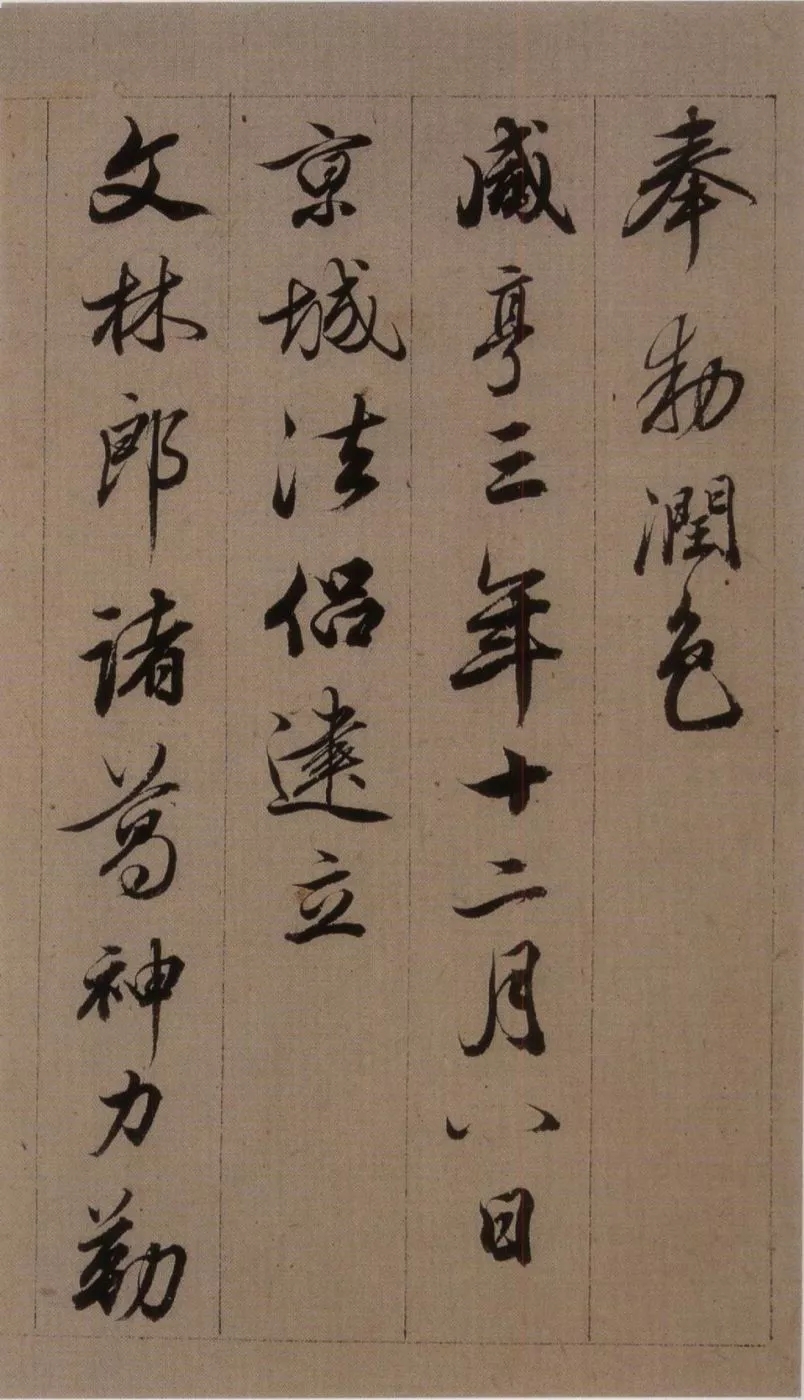 奉勑潤色
咸亨三年十二月八日
京城法侣建立
文林郎諸葛神力勒